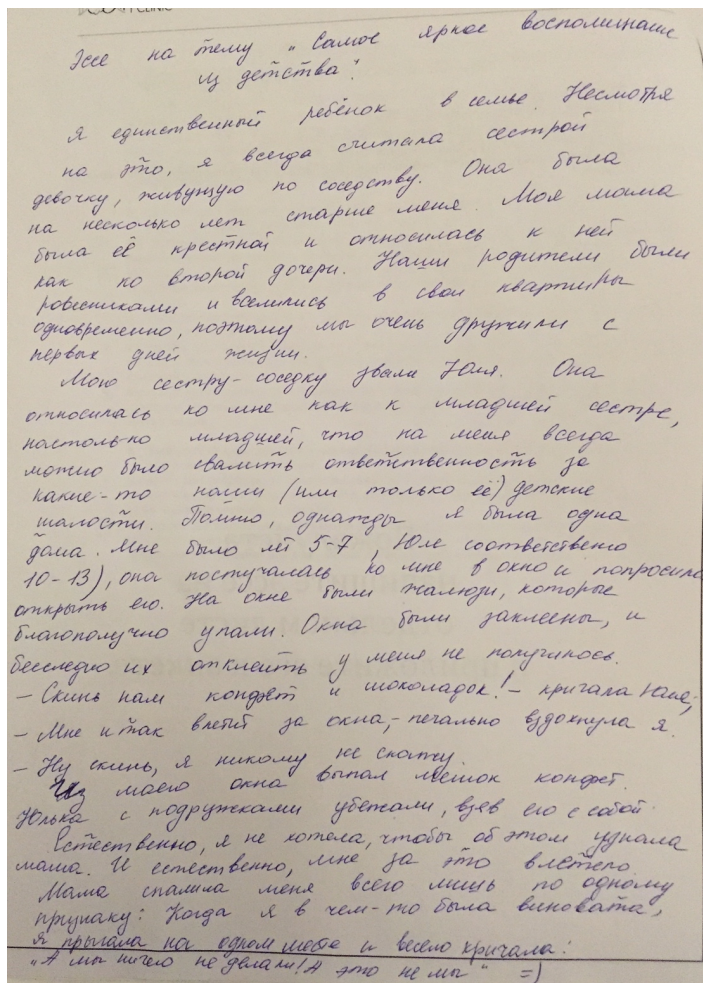 CLINIC
Эссе на тему "Самое яркое воспоминание
из детства".
Я единственный ребёнок в семье. Несмотря
на это, я всегда считала сестрой
девочку, живущую по соседству. Она была
на несколько лет старше меня. Моя мама
была её крестной и относилась к ней
как ко второй дочери. Наши родители были
ровесниками и вселились в свои квартиры
одновременно, поэтому мы очень дружили с
первых дней жизни.
Мою сестру-соседку звали Юля. Она
относилась ко мне как к младшей сестре,
настолько младшей, что на меня всегда
можно было свалить ответственность за
какие-то наши (или только её) детские
шалости. Помню, однажды я была одна
дома. Мне было лет 5-7, Юле соответственно
10-13), она постучалась ко мне в окно и попросила
открыть его. На окне были жалюзи, которые
благополучно упали. Окна были заклеены, и
бесследно их отклеить у меня не получилось.
- Скинь нам конфет и шоколадок! - кричала Юля;
- Мне и так влетит за окна, - печально вздохнула я.
- Ну скинь, я никому не скажу.
Из моего окна выпал мешок конфет.
Юлька с подружками убежали, взяв его с собой.
Естественно, я не хотела, чтобы об этом узнала
мама. И естественно, мне за это влетело.
Мама спалила меня всего лишь по одному
признаку: Когда я в чем-то была виновата,
я прыгала на одном месте и весело кричала:
"А мы ничего не делали! А это не мы" =)